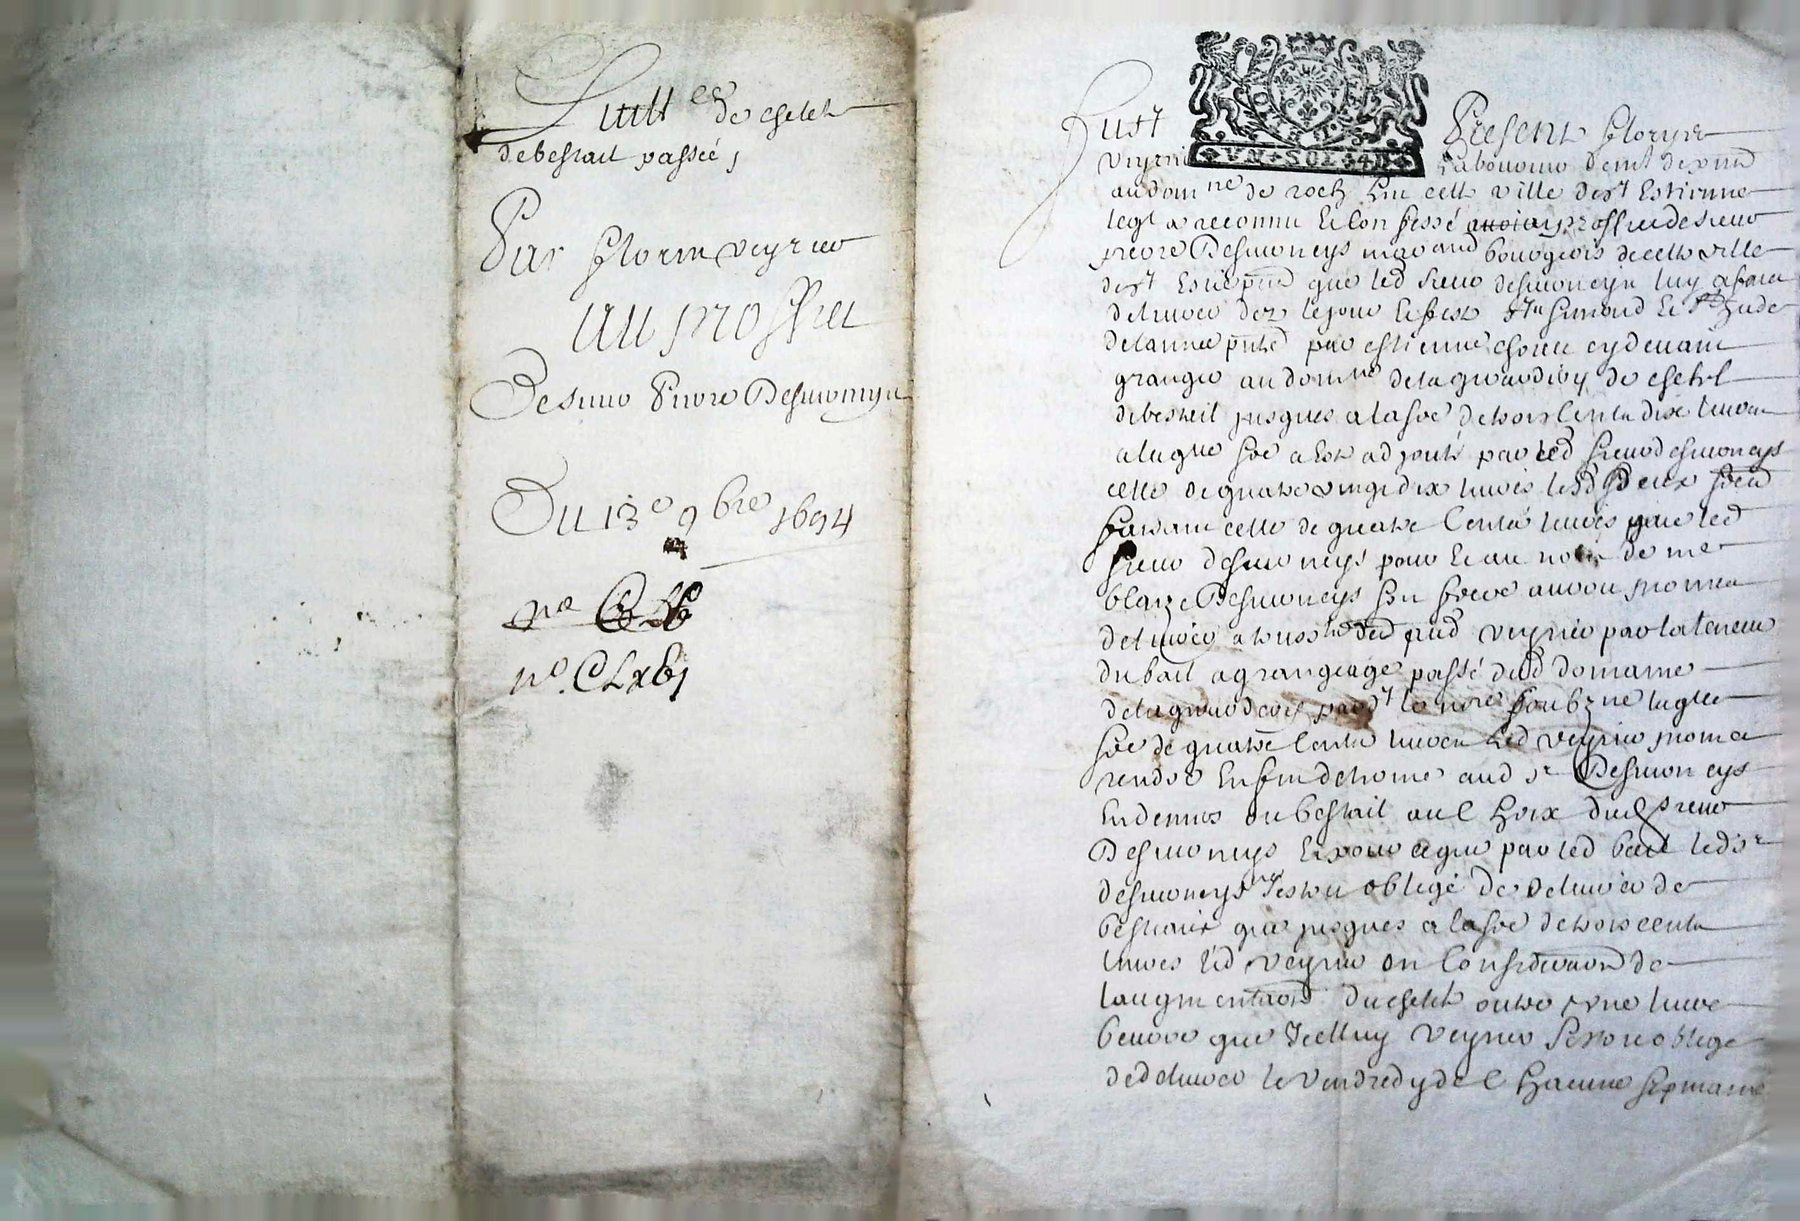 Quitt ces de chetel
de bestail passée,
Par florin veyrier
au proffict
De sieur Pierre Desmoneys
Du 13e 9bre 1694
no CLxbj
UN SOL 4 D
fust Present floryn
veyrier Laboureur
au domne de roch en cette ville de st Estienne
leql a reconnu et confessé au proffict de sieur
pierre Desmoneys marchand bourgeois de cette ville
de st Estienne que led sieur desmoneys luy a faict
delivrer dez le jour et feste st Simond et st Jude
de lannée pnte par estienne cy devant
granger au domne de la de chetel
de bestail jusques a la soe de trois cents dix livres
a laque soe a este adjouté par led sieur desmoneys
celle de quatre vingt dix livres lesd deux soes
faisant celle de quatre cents livres que led
sieur desmoneys pour et au nom de me
blaize Desmoneys son frere auroit promis
delivrer aud veyrier par la teneur
du bail a grangeage passé dud domaine
de la par dt le nore soubzne laqlle
soe de quatre cents livres led veyrier promet
rendre en fin de terme aud sr Desmoneys
en deniers ou bestail au choix dud sieur
Desmoneys et pour ce que par led bail led sr
desmoneys nestoit obligé de delivrer de
bestail que jusques a la soe de trois cents
livres led veyrier en consideration de
laugmentaon du chetel outre une livre
beurre que Icelluy veyrier sestoit obligé
de delivrer le vendredy de chacune sepmaine